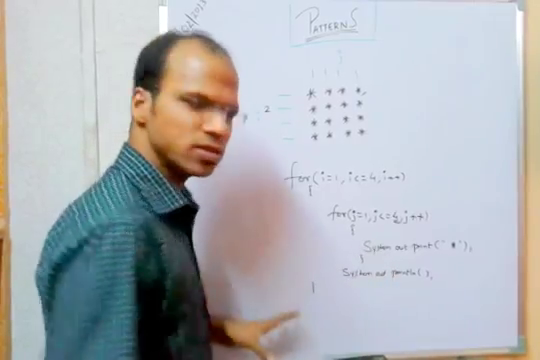 02/2013
PATTERNS
j
* * * *
2 * * * *
* * * *
* * * *
for(i=1, i<=4, i++)
{
for(j=1, j<=4, j++)
{
System out print(" * "),
}
System out println( ),
}